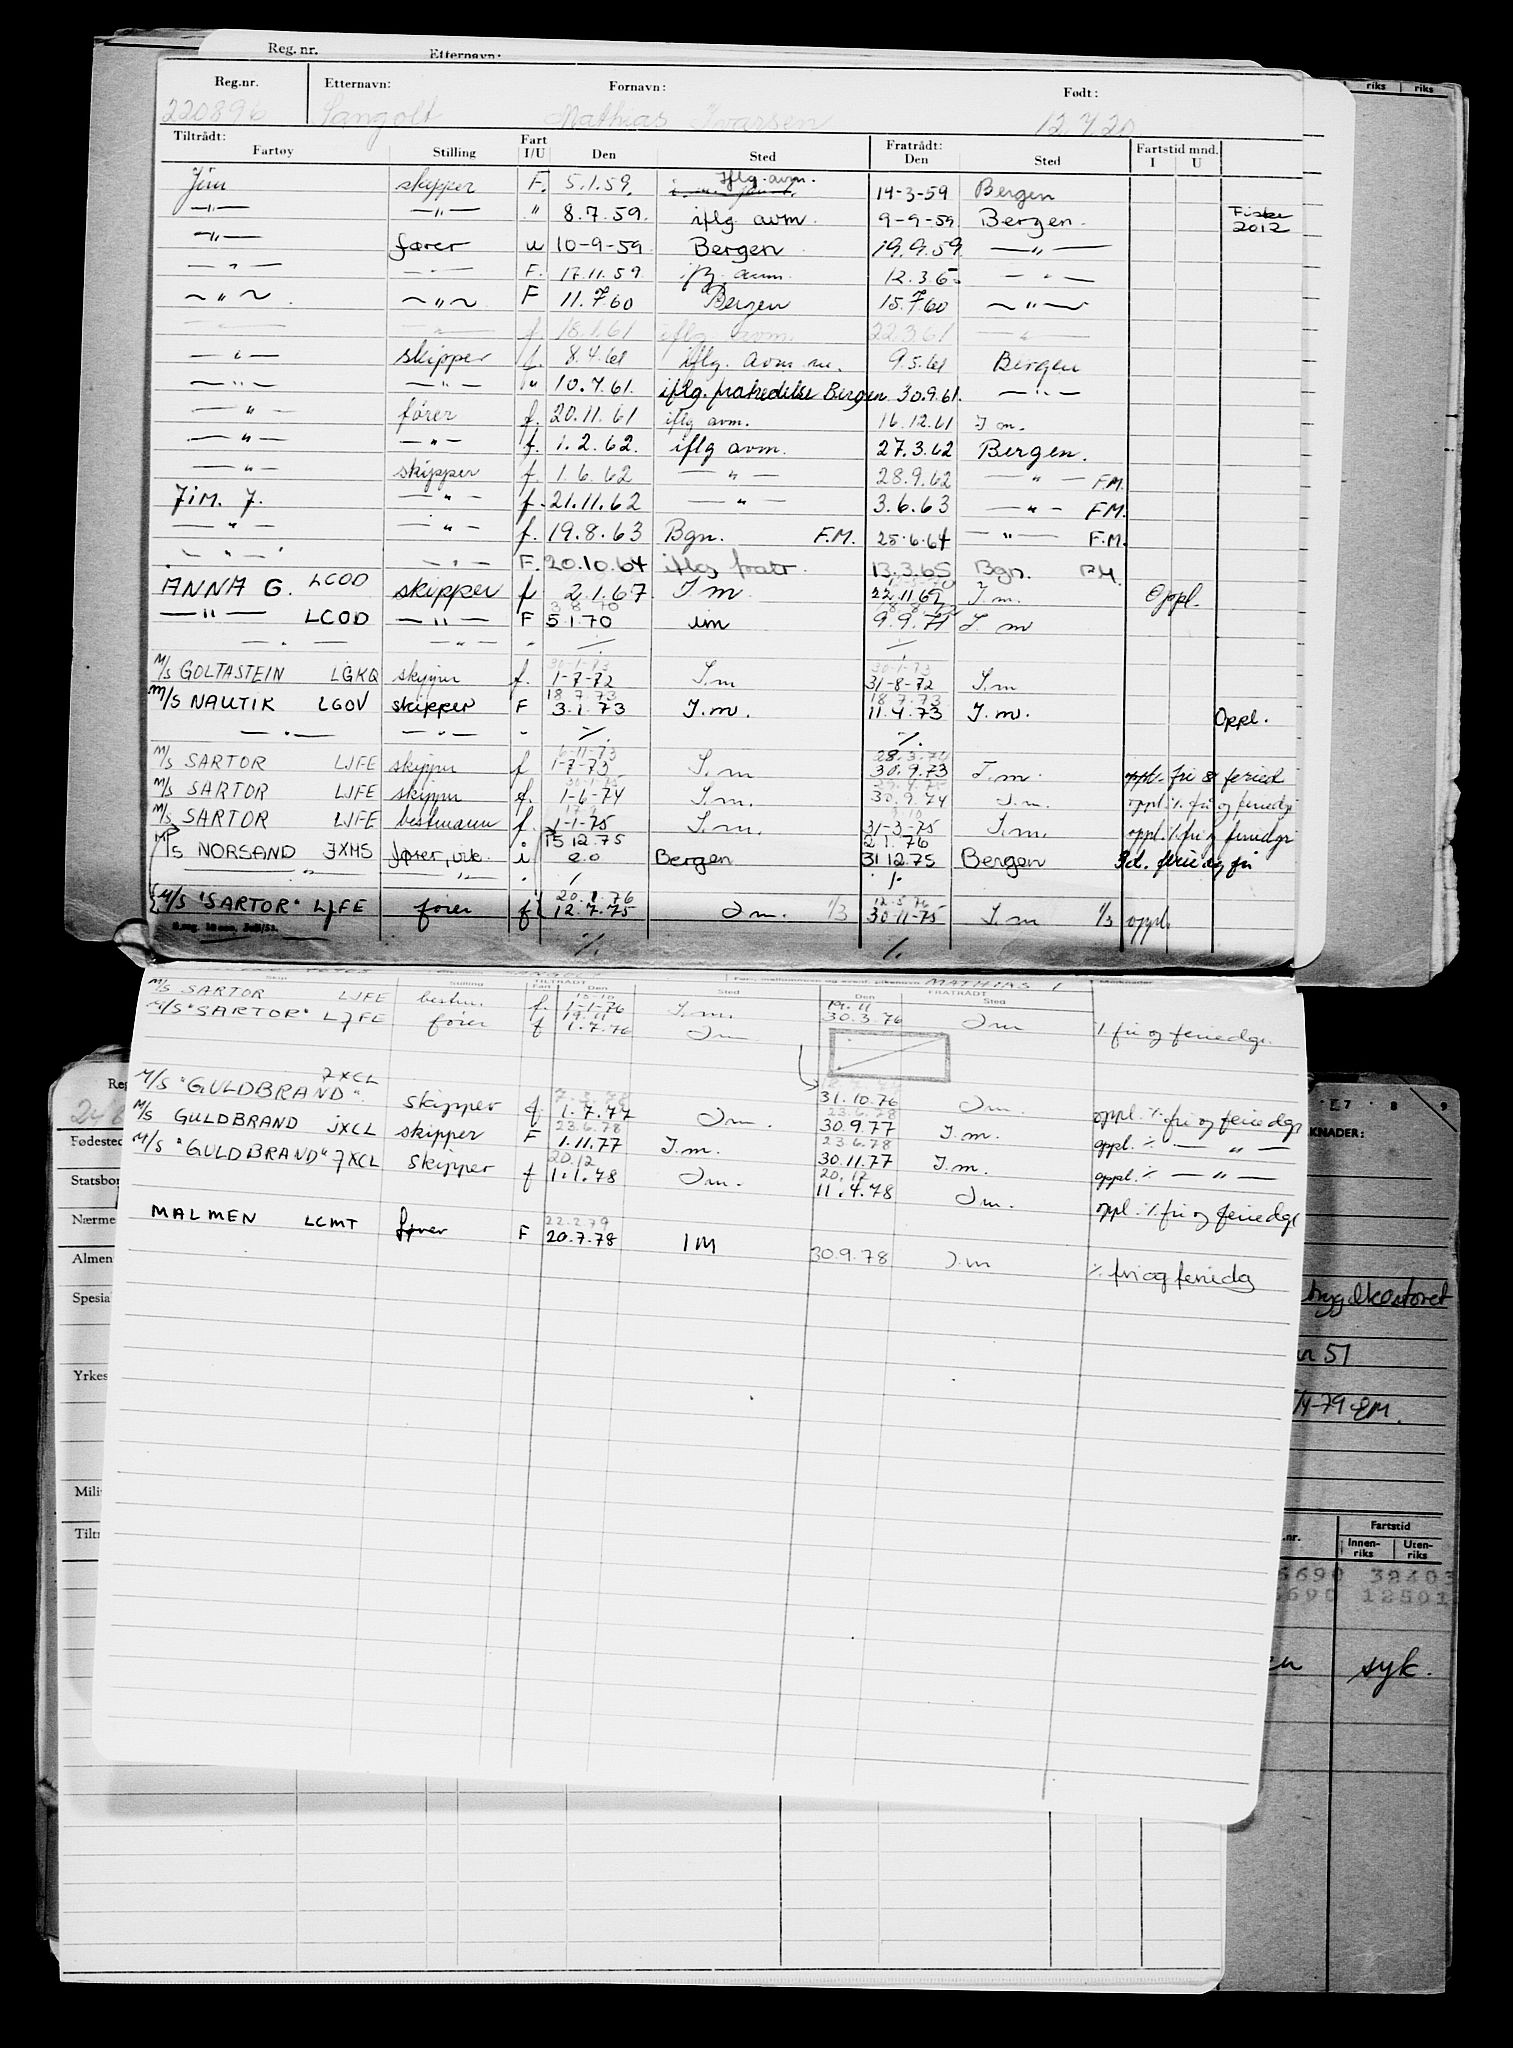 Reg. nr. Etternavn:
Reg.nr. Etternavn: Fornavn: Født:
220896 Sangolt Mathias Ivarsen 12.7.20
Tiltrådt: Fart Fratrådt: Fartstid mnd.
Fartøy Stilling I/U Den Sted Den Sted I U
Jim skipper F. 5.1.59. Iflg. avm. 14-3-59 Bergen
—"— —"— " 8.7.59. iflg avm. 9-9-59 Bergen. Fiske 2012
—"— fører u 10-9-59 Bergen 19.9.59 —"—
—"— —"— F. 17.11.59 iflg. avm. 12.3.60 —"—
—"— —"— F 11.7.60 Bergen 15.7.60 —"—
—"— —"— f 18.1.61 iflg avm. 22.3.61 —"—
—"— skipper f. 8.4.61 iflg. avm. 9.5.61 Bergen
—"— —"— " 10.7.61. iflg. fratredelse Bergen 30.9.61. —"—
—"— fører f. 20.11.61 iflg avm. 16.12.61 I m.
—"— —"— f. 1.2.62. iflg avm. 27.3.62 Bergen.
—"— skipper f. 1.6.62 —"— 28.9.62 —"— F.M.
JIM. J. —"— f. 21.11.62 —"— 3.6.63 —"— F.M.
—"— —"— f. 19.8.63 Bgn. F.M. 25.6.64 —"— F.M.
—"— —"— F. 20.10.64 iflg fratr. 13.3.65 Bgn. F.M.
ANNA G. LCOD skipper f 2.1.67 I m 22.11.69 I m. Oppl.
—"— LCOD —"— F 3 8 70 5.1.70 im 9.9.71 I. m
—"— —"— " %. %.
M/S GOLTASTEIN LGKQ skipper f. 30-1-73 1-7-72 I.m 30-1-73 31-8-72 I.m
M/S NAUTIK LGOV skipper F 18 7 73 3.1.73 I.m. 18 7.73 11.4.73 I.m. Oppl.
—"— —"— " %. %.
M/S SARTOR LJFE skipper f 6-11-73 1-7-73 I.m 28.3.74 30.9.73 I.m. oppl. fri & feried
M/S SARTOR LJFE skipper f. 1-6-74 I.m. 30.9.74 I.m. oppl. %. fri og feriedgr
M/S SARTOR LJFE bestmann f. 1-1-75 I.m. 31-3-75 I.m. oppl. %. fri og feriedgr
M/S NORSAND JXMS fører, vik. i 15 12.75 2.0 Bergen 2 1.76 31 12.75 Bergen 3d. ferie og fri
—"— —"— " % %
M/S "SARTOR" LJFE fører f 20.1.76 12.7.75 I m. 1/3 12.5 76 30-11-75 I.m 1/3 oppl.
%. %.
MATHIAS I
Skip Stilling TILTRÅDT Fart Den Sted FRATRÅDT Den Sted
M/S SARTOR LJFE bestm. f. 1-1-76 I.m. 19.11 30.3.76 I m % fri og feriedgr.
M/S "SARTOR" LJFE fører f 19.11 1.7.76 I m
M/S "GULDBRAND". JXCL skipper f. 1.7.77 I m. 31.10.76 I m. oppl. %. fri og feriedgr
M/S GULDBRAND JXCL skipper F 23.6.78 1.11.77 I.m. 23.6.78 30.9.77 I.m. oppl. % —"—
M/S "GULDBRAND" JXCL skipper f 20.12 1.1.78 I m. 23 6.78 30.11.77 I.m. oppl. % —"—
20.12 11.4.78 I m. oppl. %. fri og feriedgr
MALMEN LCMT fører F 22.2.79 20.7.78 IM 30.9.78 I.m %. fri og feriedg
Fødested
Statsbor
Nærme
Almen
Spesial
Yrkes
Milit
Tiltr
riks riks
7 8 9
KNADER:
trygdkontoret
51
4-79 EM.
Fartstid
.nr. Innen-riks Uten-riks
6690 32403
6690 12501
syk.